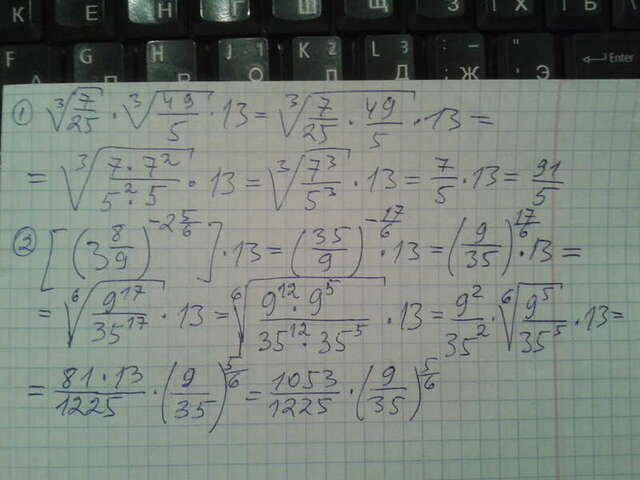 К Е Н Г Ш Щ З Х Ъ
F А П H Р J О K Л L Д : ; Ж " ' Э Enter
① ∛(7/25) · ∛(49/5) · 13 = ∛(7/25 · 49/5) · 13 =
= ∛((7·7²)/(5²·5)) · 13 = ∛(7³/5³) · 13 = 7/5 · 13 = 91/5
② [(3 8/9)^(-2 5/6)] · 13 = (35/9)^(-17/6) · 13 = (9/35)^(17/6) · 13 =
= ⁶√(9¹⁷/35¹⁷) · 13 = ⁶√((9¹²·9⁵)/(35¹²·35⁵)) · 13 = 9²/35² · ⁶√(9⁵/35⁵) · 13 =
= (81·13)/1225 · (9/35)^(5/6) = 1053/1225 · (9/35)^(5/6)